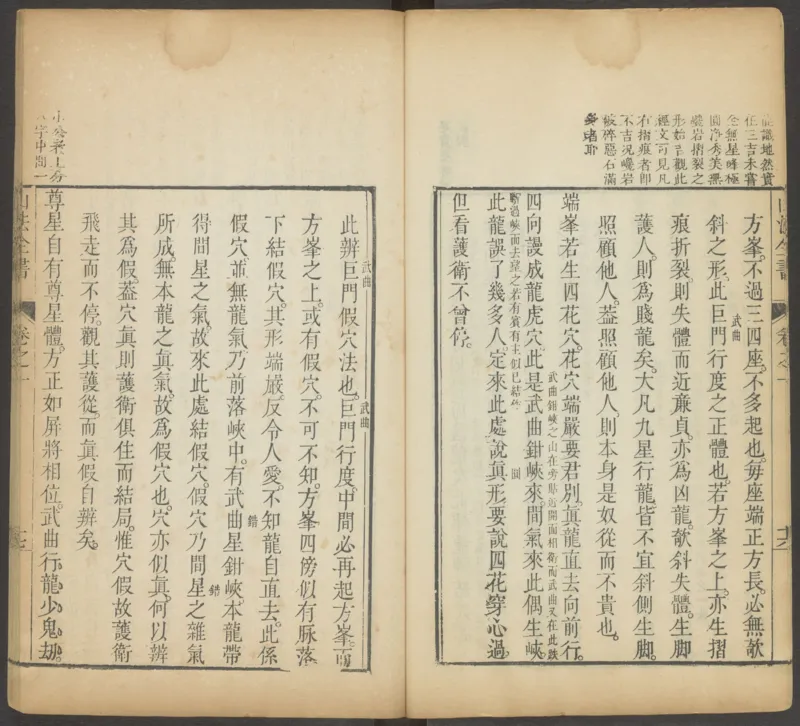 能識地然實
在三吉未嘗
全無星峰極
圓淨秀美無
巉岩摺裂之
形始吉觀此
經文可見凡
有摺痕者即
不吉況巉岩
破碎惡石滿
身者耶
方峯不過三四座不多起也每座端正方長必無欹
武曲
斜之形此巨門行度之正體也若方峯之上亦生摺
痕折裂則失體而近廉貞亦爲凶龍欹斜失體生脚
護人則爲賤龍矣大凡九星行龍皆不宜斜側生脚
照顧他人蓋照顧他人則本身是奴從而不貴也
端峯若生四花穴花穴端嚴要君別眞龍直去向前行
武曲鉗峽之山在旁貼近開面相衛而武曲又在此跌
四向謾成龍虎穴此是武曲鉗峽來間氣來此偶生峽
斷過峽面去望之若有賓有主似已結
此龍誤了幾多人定來此處說眞形要說四花穿心過
但看護衛不曾停
山法全書
卷之一
武曲
武曲
此辨巨門假穴法也巨門行度中間必再起方峯而
方峯之上或有假穴不可不知方峯四傍似有脉落
下結假穴其形端嚴反令人愛不知龍自直去此係
錯
假穴並無龍氣乃前落峽中有武曲星鉗峽本龍帶
錯
得間星之氣故來此處結假穴假穴乃間星之雜氣
所成無本龍之眞氣故爲假穴也穴亦似眞何以辨
其爲假蓋穴眞則護衛俱住而結局惟穴假故護衛
飛走而不停觀其護從而眞假自辨矣
尊星自有尊星體方正如屏將相位武曲行龍少鬼劫
山法全書
卷之一